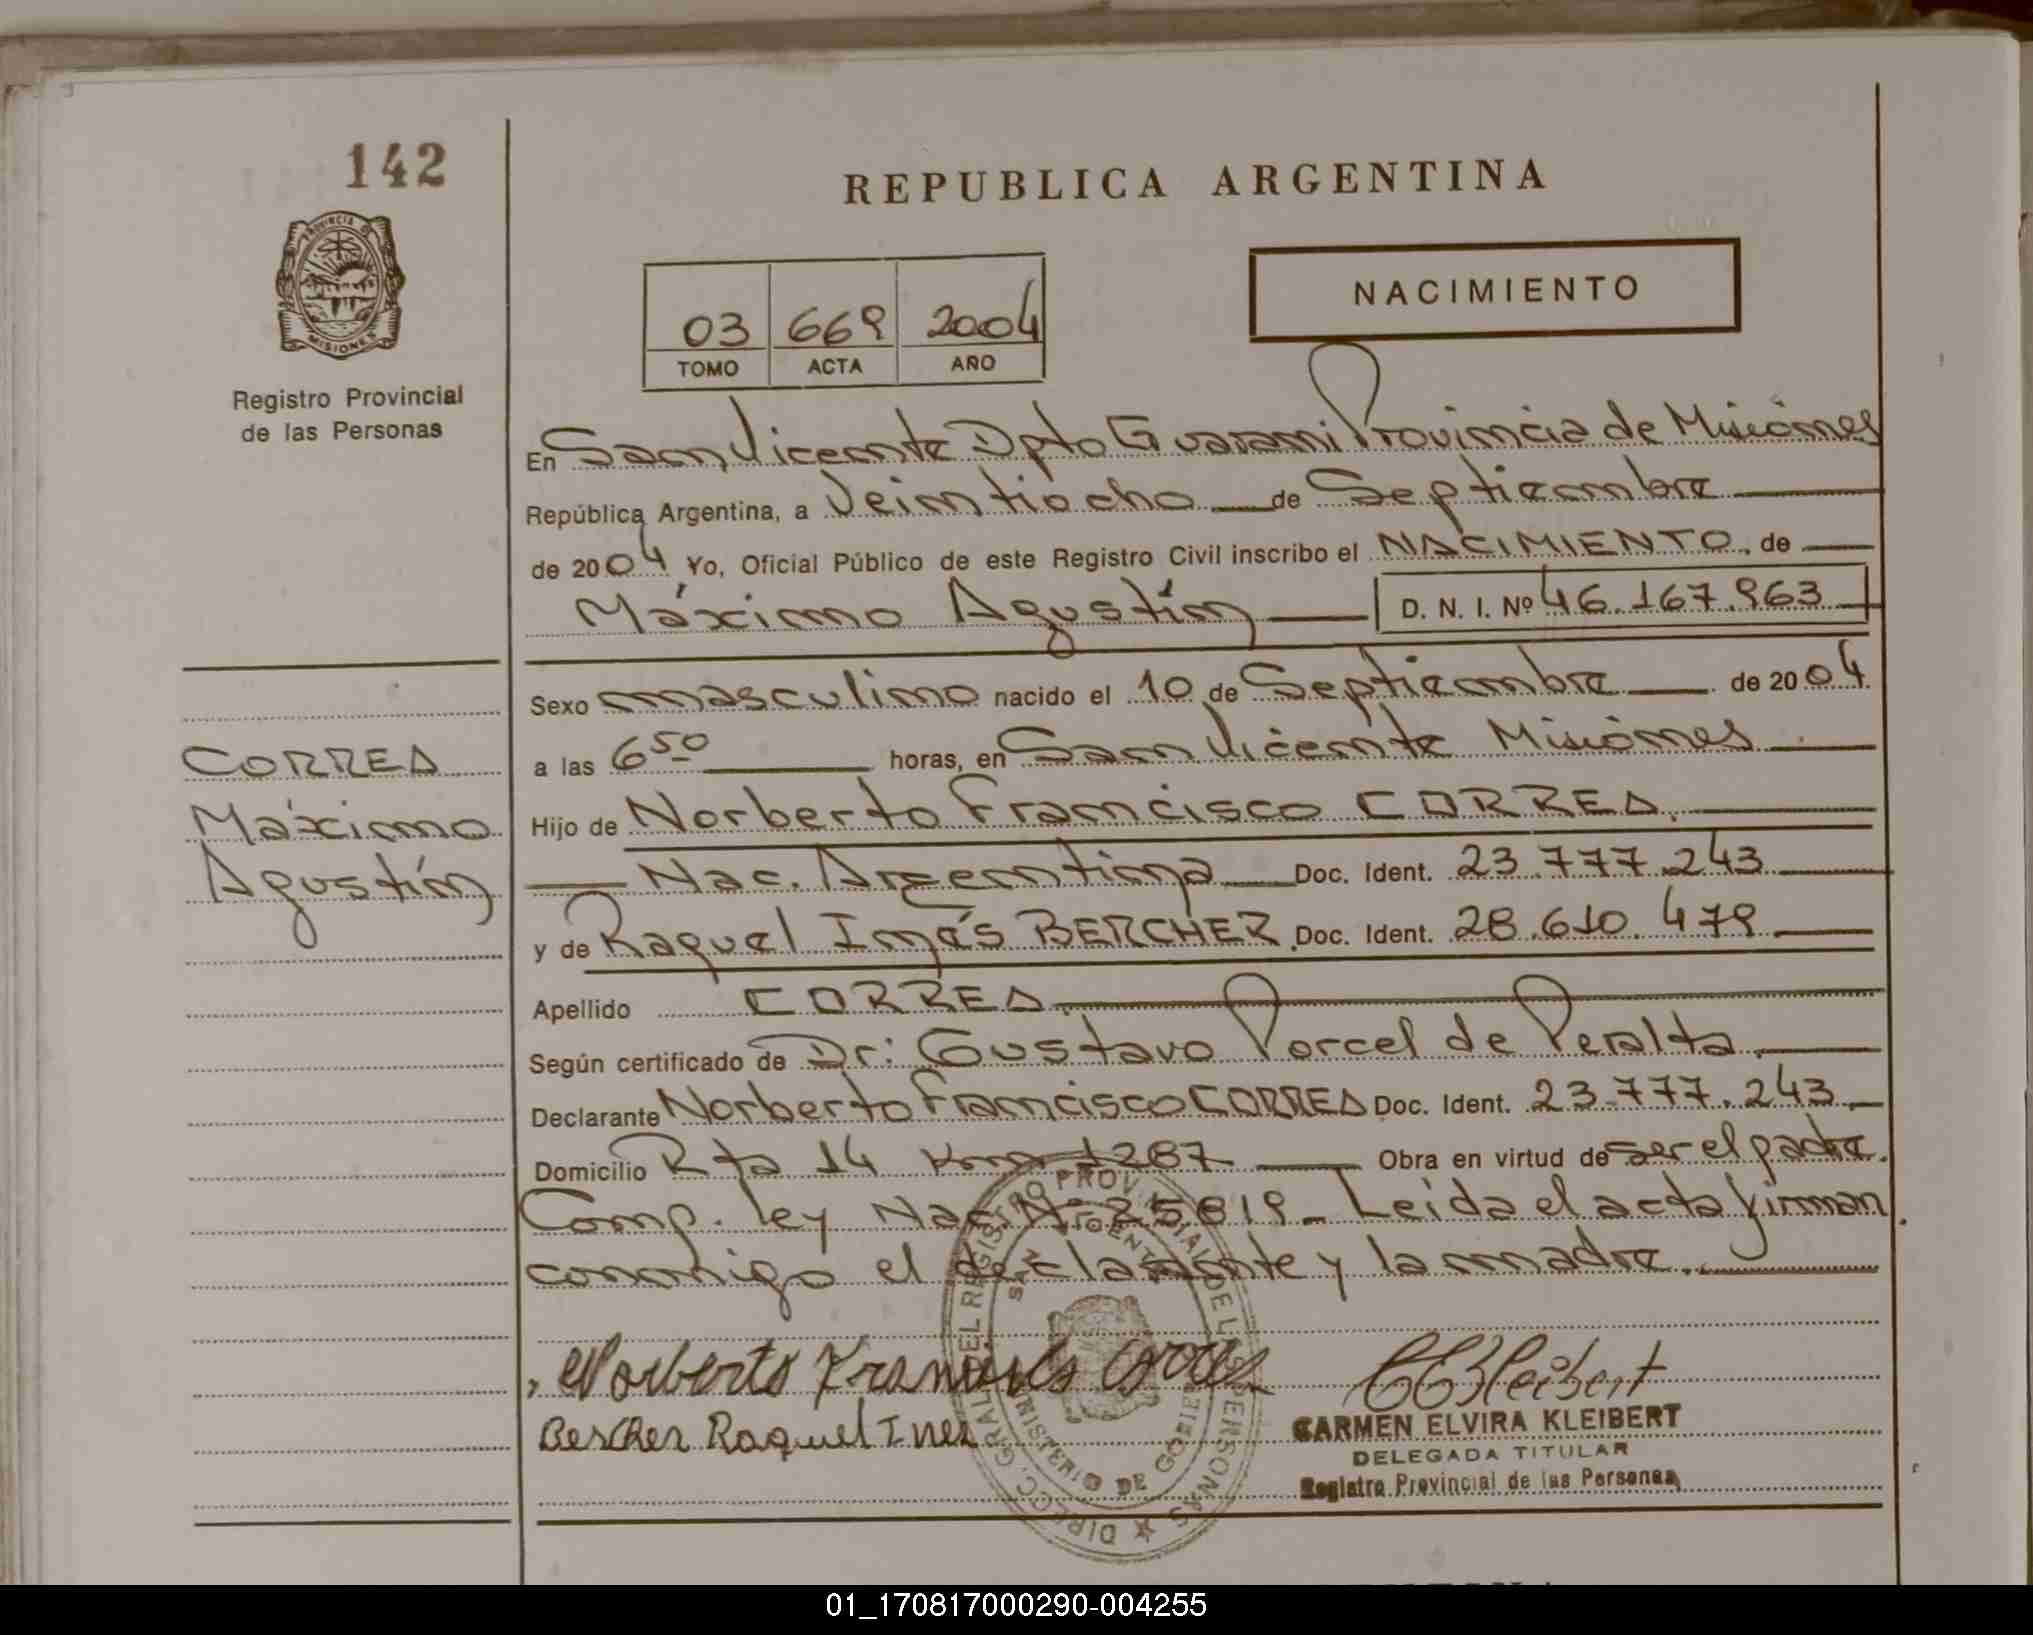 142
REPUBLICA ARGENTINA
PROVINCIA DE
MISIONES
Registro Provincial
de las Personas
03 669 2004
TOMO ACTA AÑO
NACIMIENTO
En San Vicente Dpto Guarani Provincia de Misiones
República Argentina, a Veintiocho de Septiembre
de 2004 Yo, Oficial Público de este Registro Civil inscribo el NACIMIENTO de
Máximo Agustín D. N. I. Nº 46.167.963
Sexo masculino nacido el 10 de Septiembre de 2004
a las 6 50 horas, en San Vicente Misiones
CORREA
Máximo
Agustín
Hijo de Norberto Francisco CORREA
Nac. Argentina Doc. Ident. 23.777.243
y de Raquel Inés BERCHER Doc. Ident. 28.610.479
Apellido CORREA
Según certificado de Dr: Gustavo Porcel de Peralta
Declarante Norberto Francisco CORREA Doc. Ident. 23.777.243
Domicilio Rta 14 Km 1287 Obra en virtud de ser el padre.
Comp. ley Nac. Nº 25819 - Leida el acta firman
conmigo el declarante y la madre.
Norberto Francisco Correa
Bercher Raquel Ines
CEKleibert
CARMEN ELVIRA KLEIBERT
DELEGADA TITULAR
Registro Provincial de las Personas
01_170817000290-004255